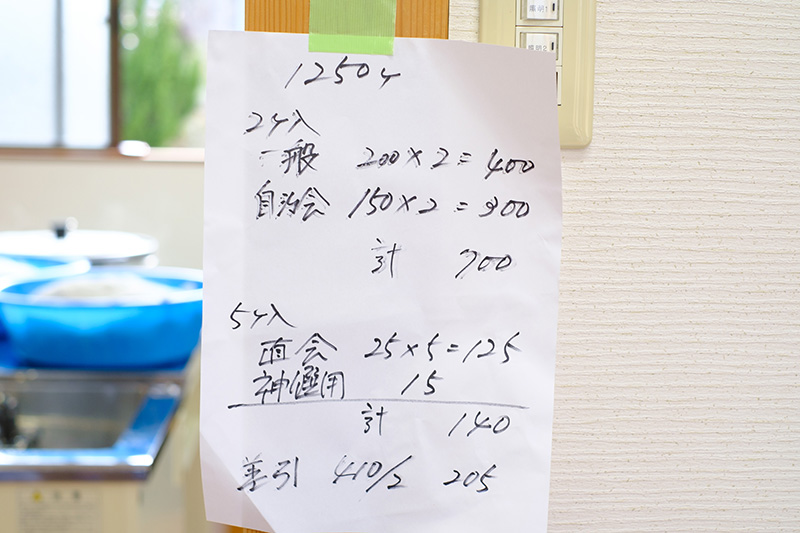 1250ケ
2ケ入
一般 200×2=400
自治会 150×2=300
計 700
5ケ入
直会 25×5=125
神殿用 15
計 140
差引 410/2 205
照明1
照明2